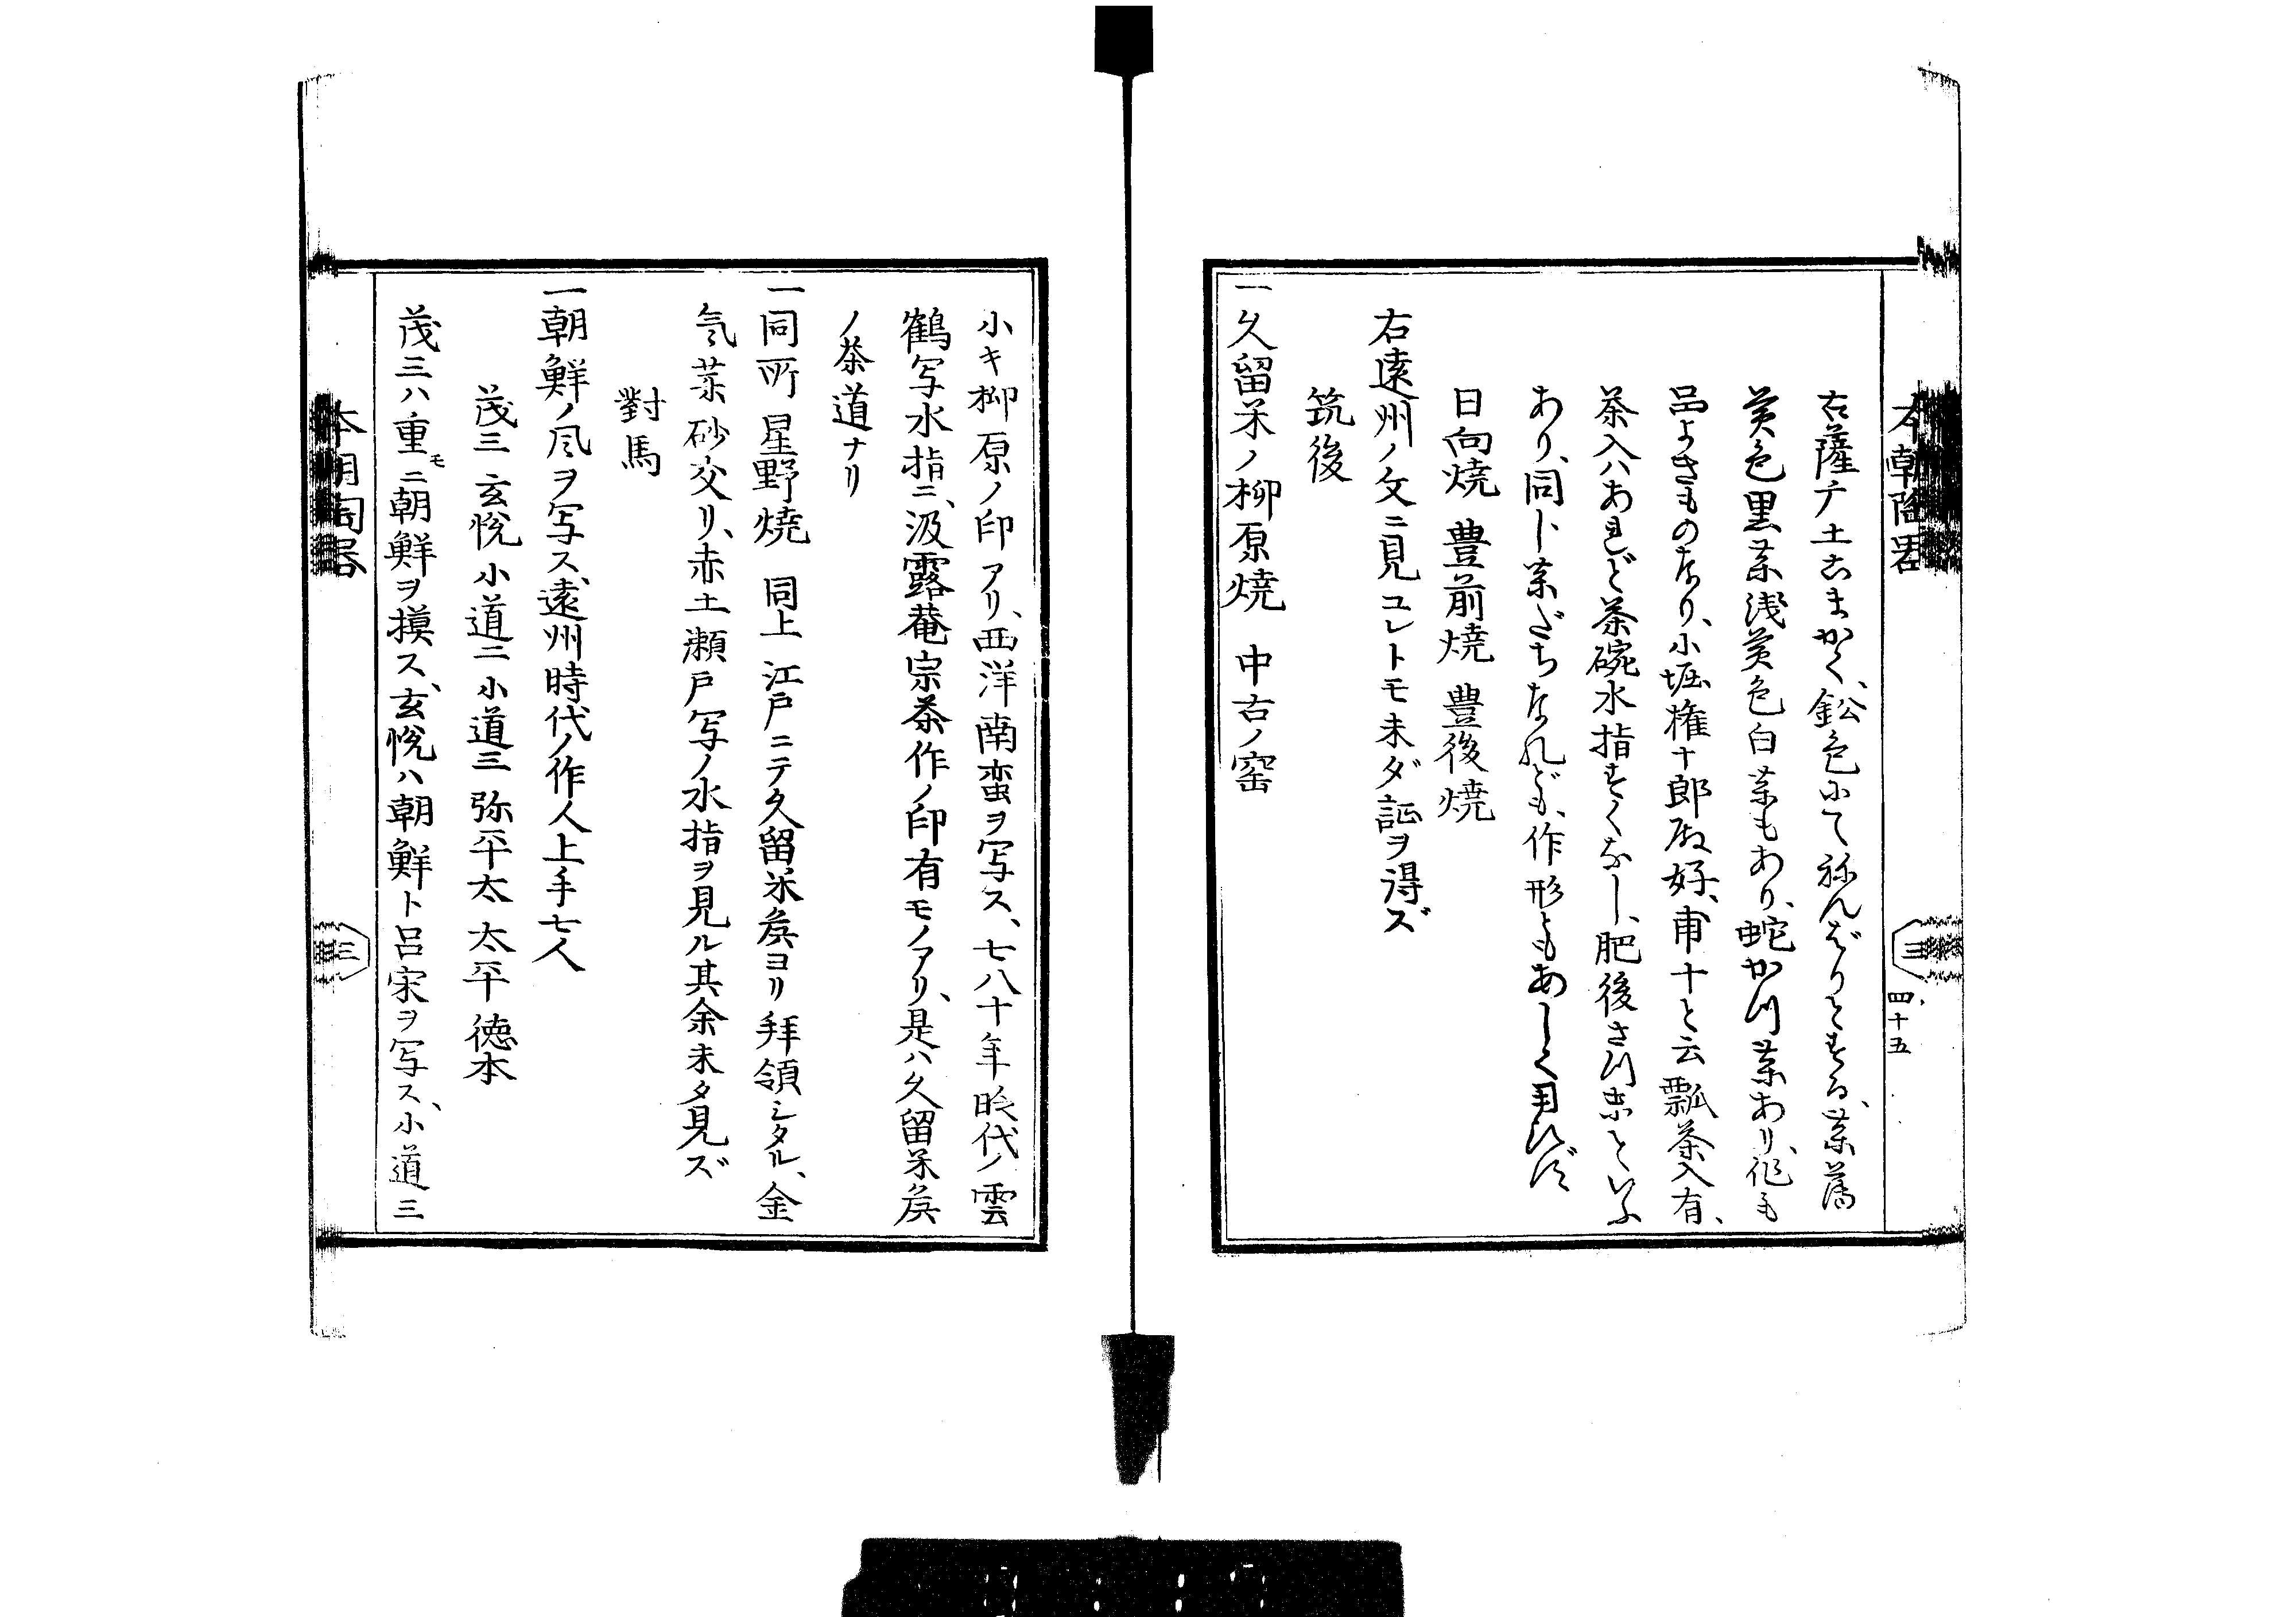 本朝陶器
三
四十五
右薩广土こまかく、鉛色にてねんばりとする、薬薄
黄色黒薬浅黄色白薬もあり、蛇かつ薬あり、作も
品よきものなり、小堀権十郎殿好、甫十と云瓢茶入有、
茶入ハあれど茶碗水指すくなし、肥後さつまといふ
あり、同じ薬だちなれども、作形ともあしく用ひず
日向焼 豊前焼 豊後焼
右遠州ノ文ニ見コレトモ未ダ証ヲ得ズ
筑後
一久留米ノ柳原焼 中古ノ窯
小キ柳原ノ印アリ、西洋南蛮ヲ写ス、七八十年時代ノ雲
鶴写水指ニ、汲露菴宗茶作ノ印有モノアリ、是ハ久留米矦
ノ茶道ナリ
一同所星野焼 同上 江戸ニテ久留米矦ヨリ拝領シタル、金
気薬砂交リ、赤土瀬戸写ノ水指ヲ見ル其余未タ見ズ
對馬
一朝鮮ノ風ヲ写ス、遠州時代ノ作人上手七人
茂三 玄悦 小道二 小道三 弥平太 太平 徳本
茂三ハ重モニ朝鮮ヲ摸ス、玄悦ハ朝鮮ト呂宋ヲ写ス、小道三
本朝陶器
三